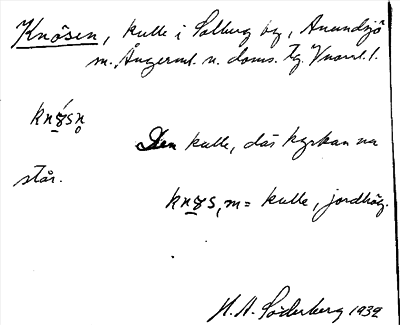 Knösen, kulle i Solberg by, Anundsjö
m., Ångerml. n. doms. tg. Vnorrl. l.
knǿsn̥
Den kulle, där kyrkan nu
står.
knøs, m = kulle, jordhög.
H. A. Söderberg 1932